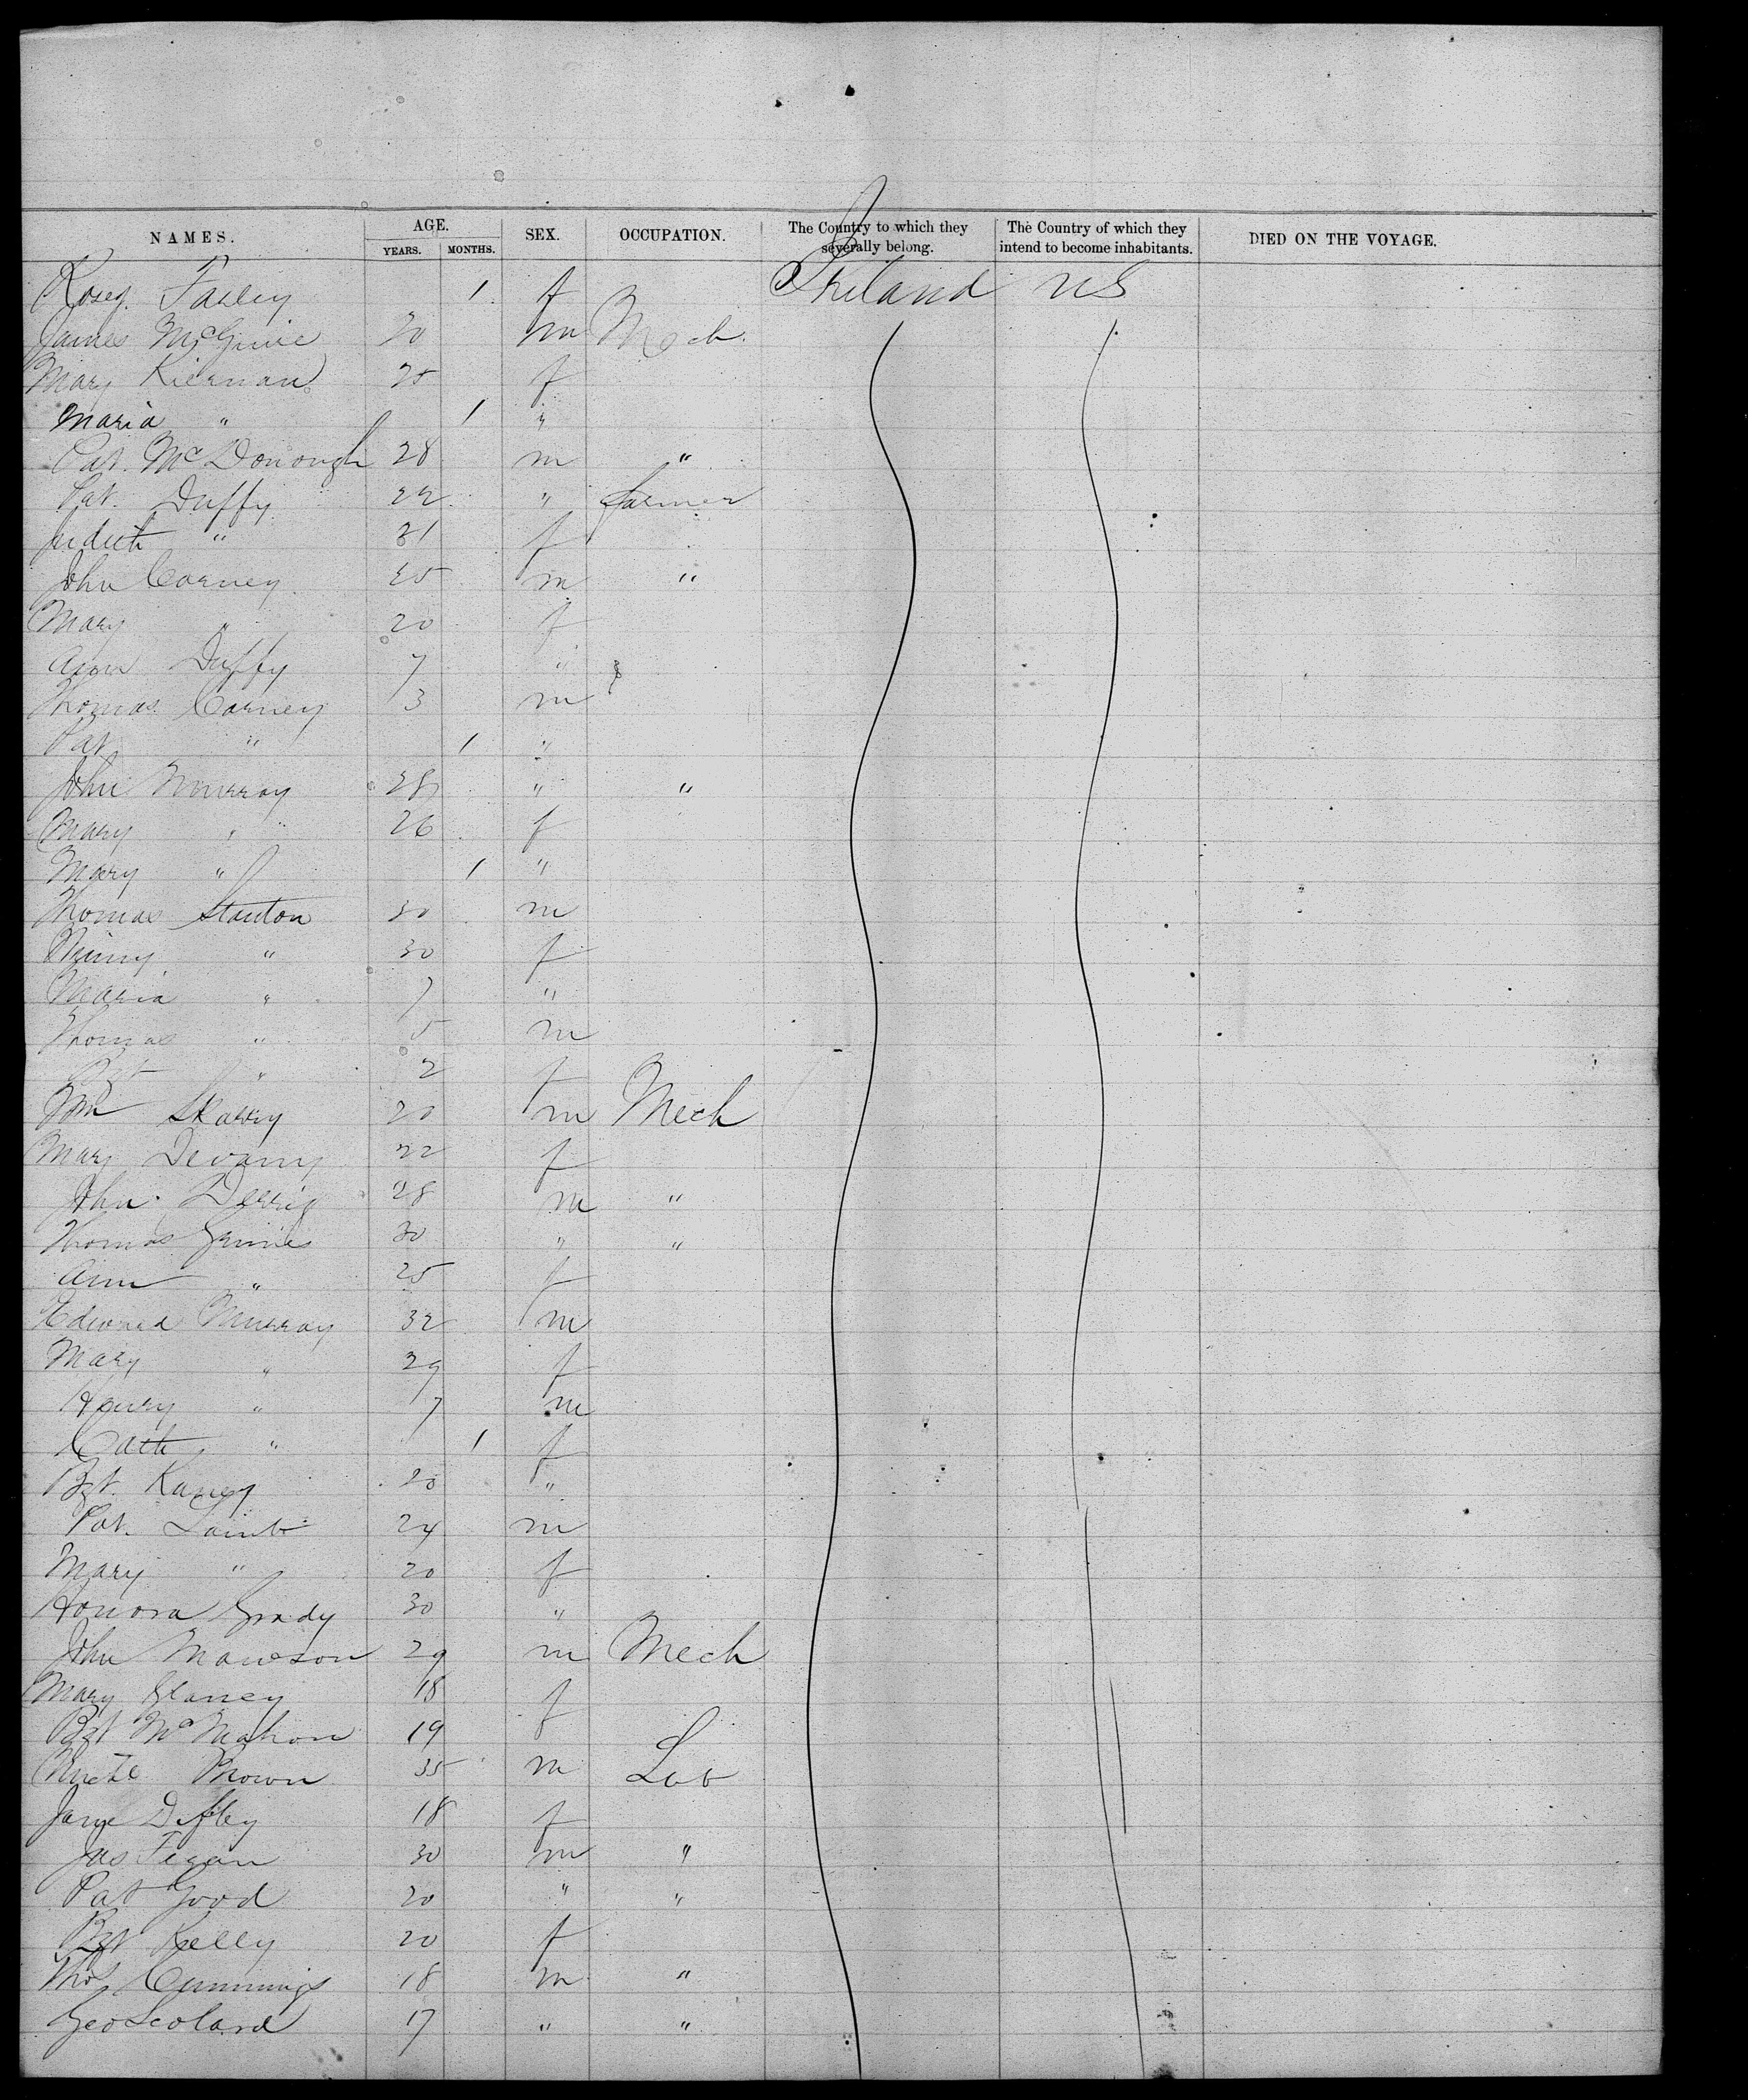 NAMES. AGE. SEX. OCCUPATION. The Country to which they severally belong. The Country of which they intend to become inhabitants. DIED ON THE VOYAGE.
YEARS. MONTHS.
Rosey Farley 1 f Ireland US
James McGuire 20 m Mech.
Mary Kiernan 25 f
Maria " 1 "
Pat. McDonough 28 m "
Pat. Duffy 22 " farmer
Judith " 21 f
John Carney 25 m "
Mary " 20 f
Ann Duffy 7 "
Thomas Carney 3 m
Pat " 1 "
John Murray 28 " "
Mary " 26 f
Mary " 1 "
Thomas Stanton 30 m
" 30 f
Maria " 7 "
Thomas " 5 m
Bgt " 2 f
Wm Skarry 20 m Mech
Mary Devany 22 f
John Derrig 28 m "
Thomas Grimes 30 " "
Ann " 25 f
Edward Murray 32 m
Mary " 29 f
Henry " 7 m
Cath " 1 f
Bgt. Kaney 20 "
Pat. Lamb 24 m
Mary " 20 f
Honora Grady 30 "
John Mawson 29 m Mech
Mary Glancy 18 f
Bgt McMahon 19
Michl Brown 35 m Lab
Jane Duffey 18 f
Jas Fegan 30 m "
Pat Good 20 " "
Bgt Kelly 20 f
Thos Cummings 18 m "
Geo Scolard 17 " "